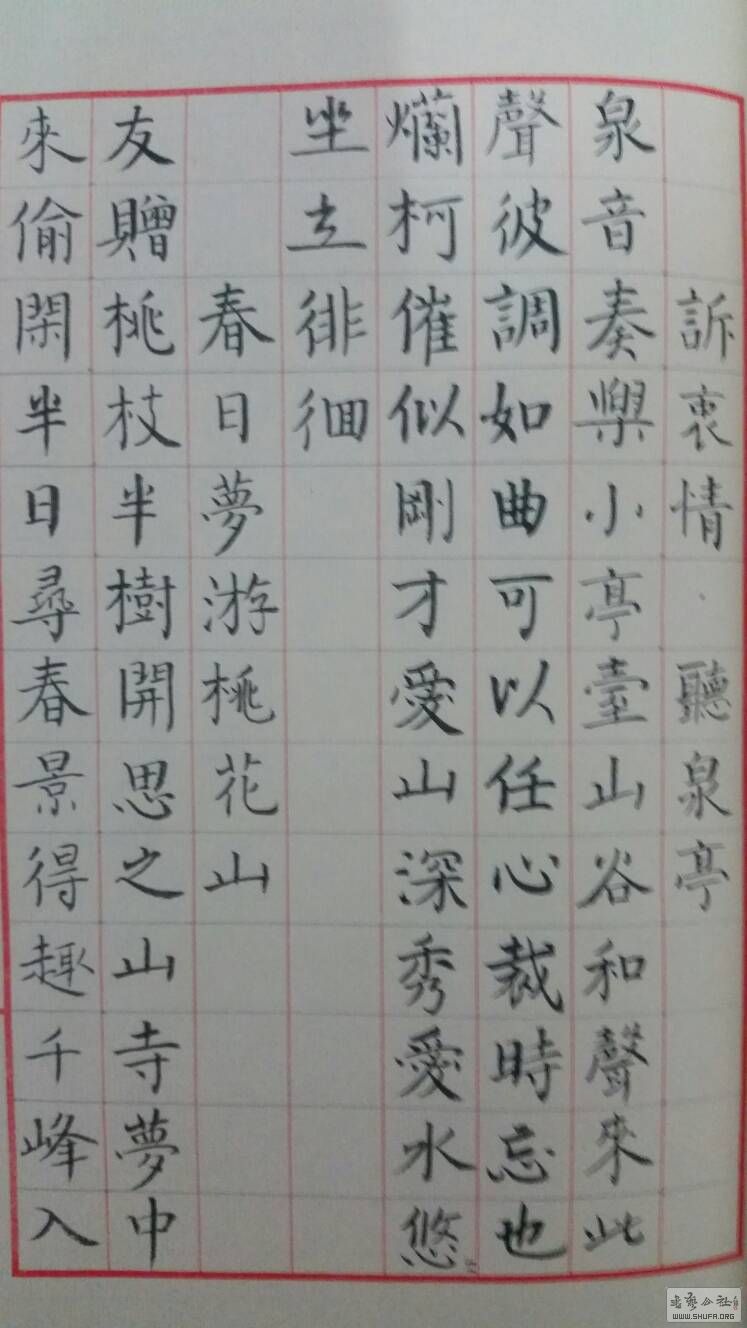 訴衷情·聽泉亭
泉音奏樂小亭臺山谷和聲來此
聲彼調如曲可以任心裁時忘也
爛柯催似剛才愛山深秀愛水悠〻
坐立徘徊
春日夢游桃花山
友贈桃枝半樹開思之山寺夢中
來偷閑半日尋春景得趣千峰入
書藝公社
WWW.SHUFA.ORG